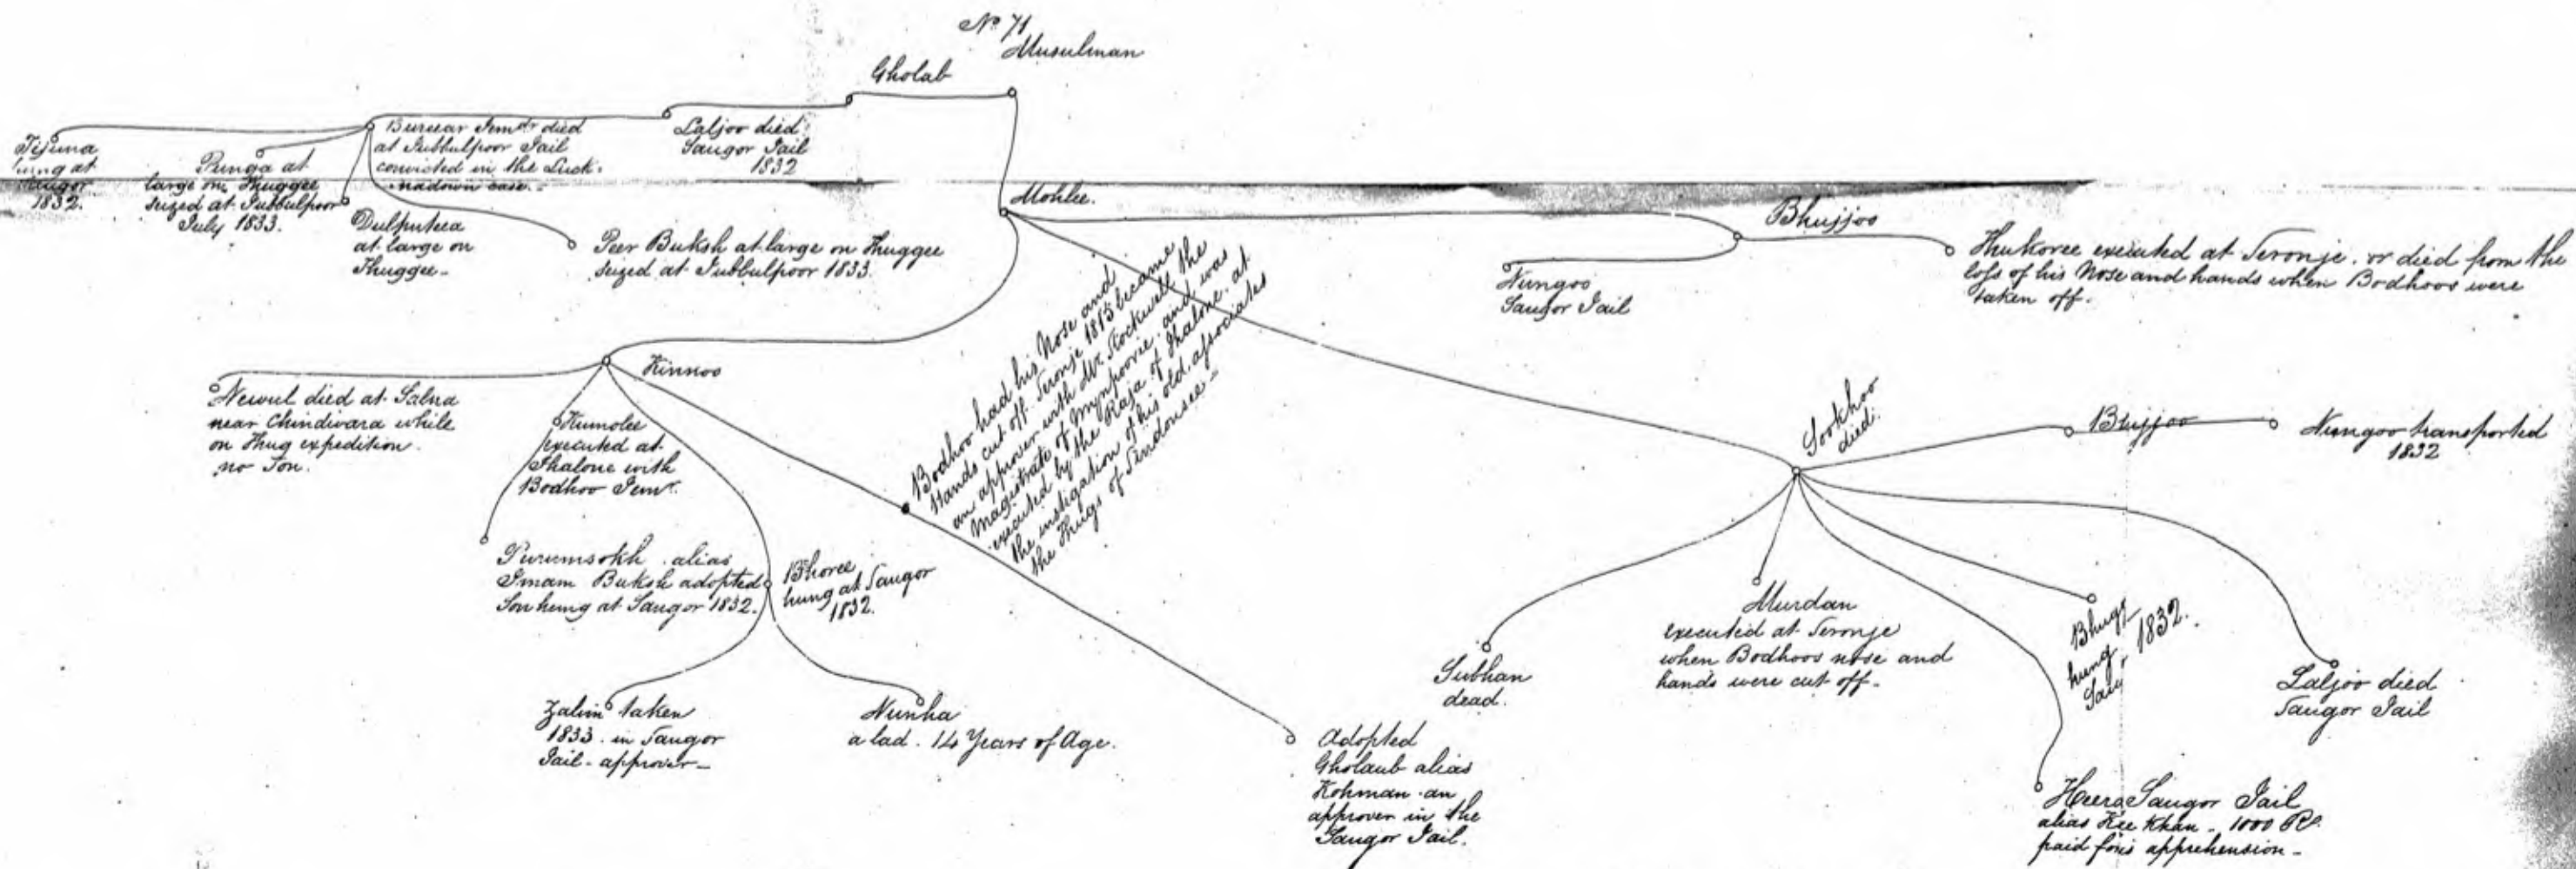 No. 71
Musulman
Gholab
Tejuna
hung at
Saugor
1832.
Punga at
large on Thuggee
seized at Jubbulpoor
July 1833.
Burear Jemdr died
at Jubbulpoor Jail
convicted in the Luck-
nadown case.-
Dulputea
at large on
Thuggee-
Peer Buksh at large on Thuggee
seized at Jubbulpoor 1833.
Laljoo died
Saugor Jail
1832
Mohlee.
Bhujjoo
Nungoo
Saugor Jail
Thukoree executed at Seronje. or died from the
loss of his Nose and hands when Bodhoos were
taken off.
Kinnoo
Newul died at
near Chindivara while
on Thug expedition.
no Son.
Kumolee
executed at
Jhalone with
Bodhoo Jemr.
Purumsokh. alias
Imam Buksh adopted
Son hung at Saugor 1832.
Bhoree
hung at Saugor
1832.
Zalim taken
1833. in Saugor
Jail- approver-
Nunha
a lad. 14 Years of Age.
Bodhoo had his Nose and
Hands cut off. Seronje 1815 became
an approver with Mr. Stockwell the
Magistrate of Mynpoorie. and was
executed by the Raja of Jhalone. at
the instigation of his old associates
the Thugs of Sindousee-
Adopted
Gholaub alias
Kohman. an
approver in the
Saugor Jail.
Sookhoo
died.
Bhujjoo
Nungoo transported
1832
Subhan
dead.
Murdan
executed at Seronje
when Bodhoos nose and
hands were cut off-
hung
1832.
Laljoo died
Saugor Jail
Heera Saugor Jail
alias Khan - 1000 Rs.
paid for's apprehension-